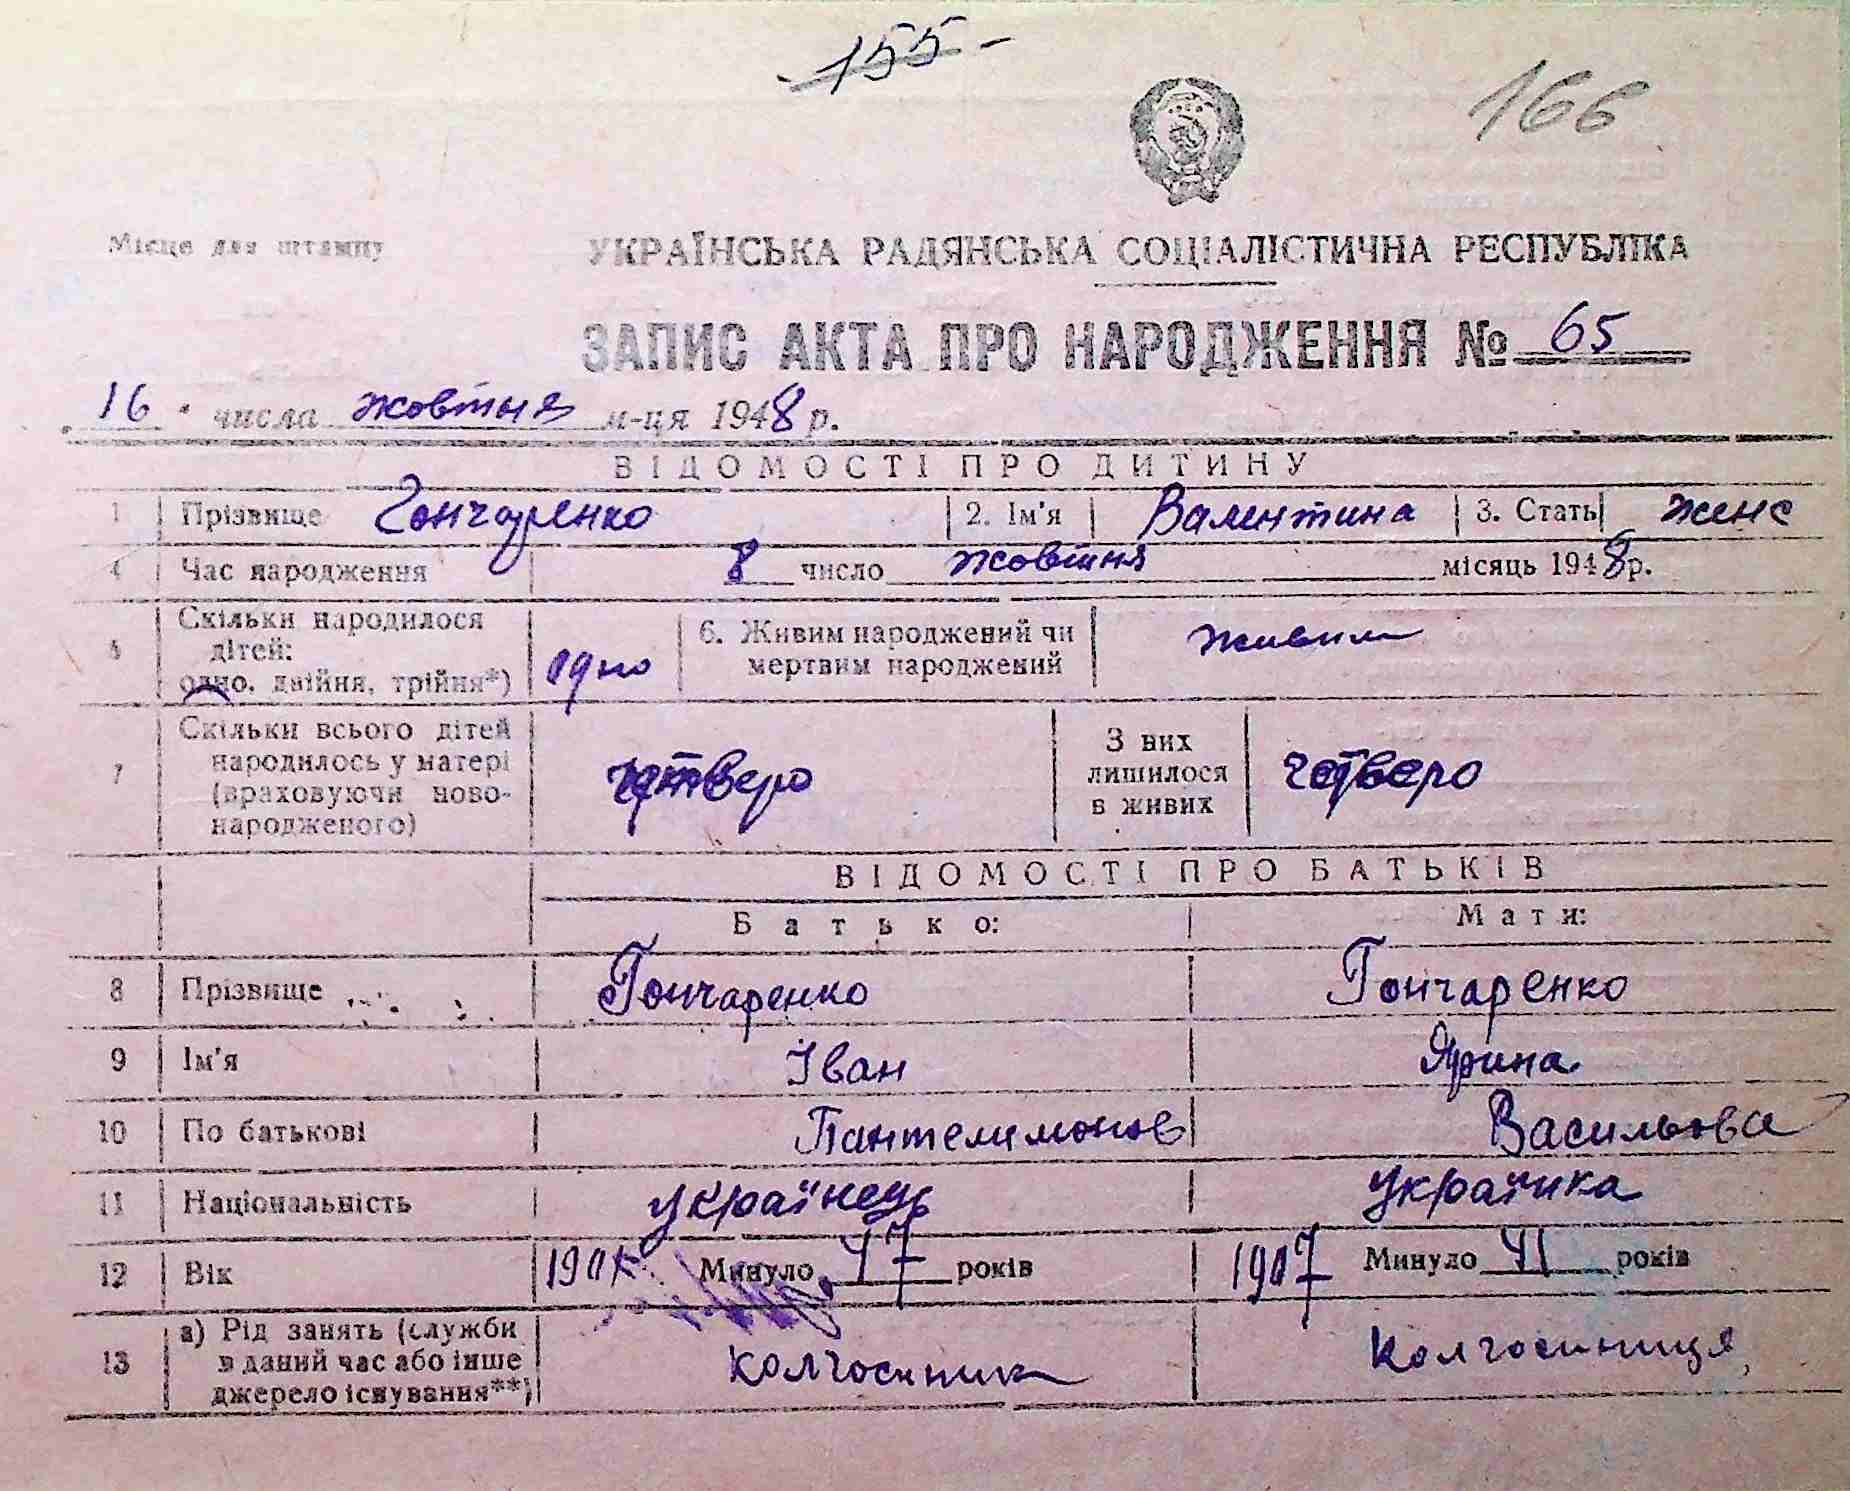 155-
166
Місце для штампу
УКРАЇНСЬКА РАДЯНСЬКА СОЦІАЛІСТИЧНА РЕСПУБЛІКА
ЗАПИС АКТА ПРО НАРОДЖЕННЯ № 65
16 числа жовтня м-ця 1948 р.
ВІДОМОСТІ ПРО ДИТИНУ
1 Прізвище Гончаренко 2. Ім'я Валентина 3. Стать жіноч
4 Час народження 8 число жовтня місяць 1948 р.
Скільки народилося
дітей:
одно, двійня, трійня*) одно
6. Живим народжений чи
мертвим народжений живим
7 Скільки всього дітей
народилось у матері
(враховуючи ново-
народженого) четверо
З них
лишилося
в живих четверо
ВІДОМОСТІ ПРО БАТЬКІВ
Батько: Мати:
8 Прізвище Гончаренко Гончаренко
9 Ім'я Іван Ярина
10 По батькові Пантелимонов Васильова
11 Національність українець українка
12 Вік Минуло 47 років 1907 Минуло 41 років
13 а) Рід занять (служби
в даний час або інше
джерело існування**) колгоспник колгоспниця